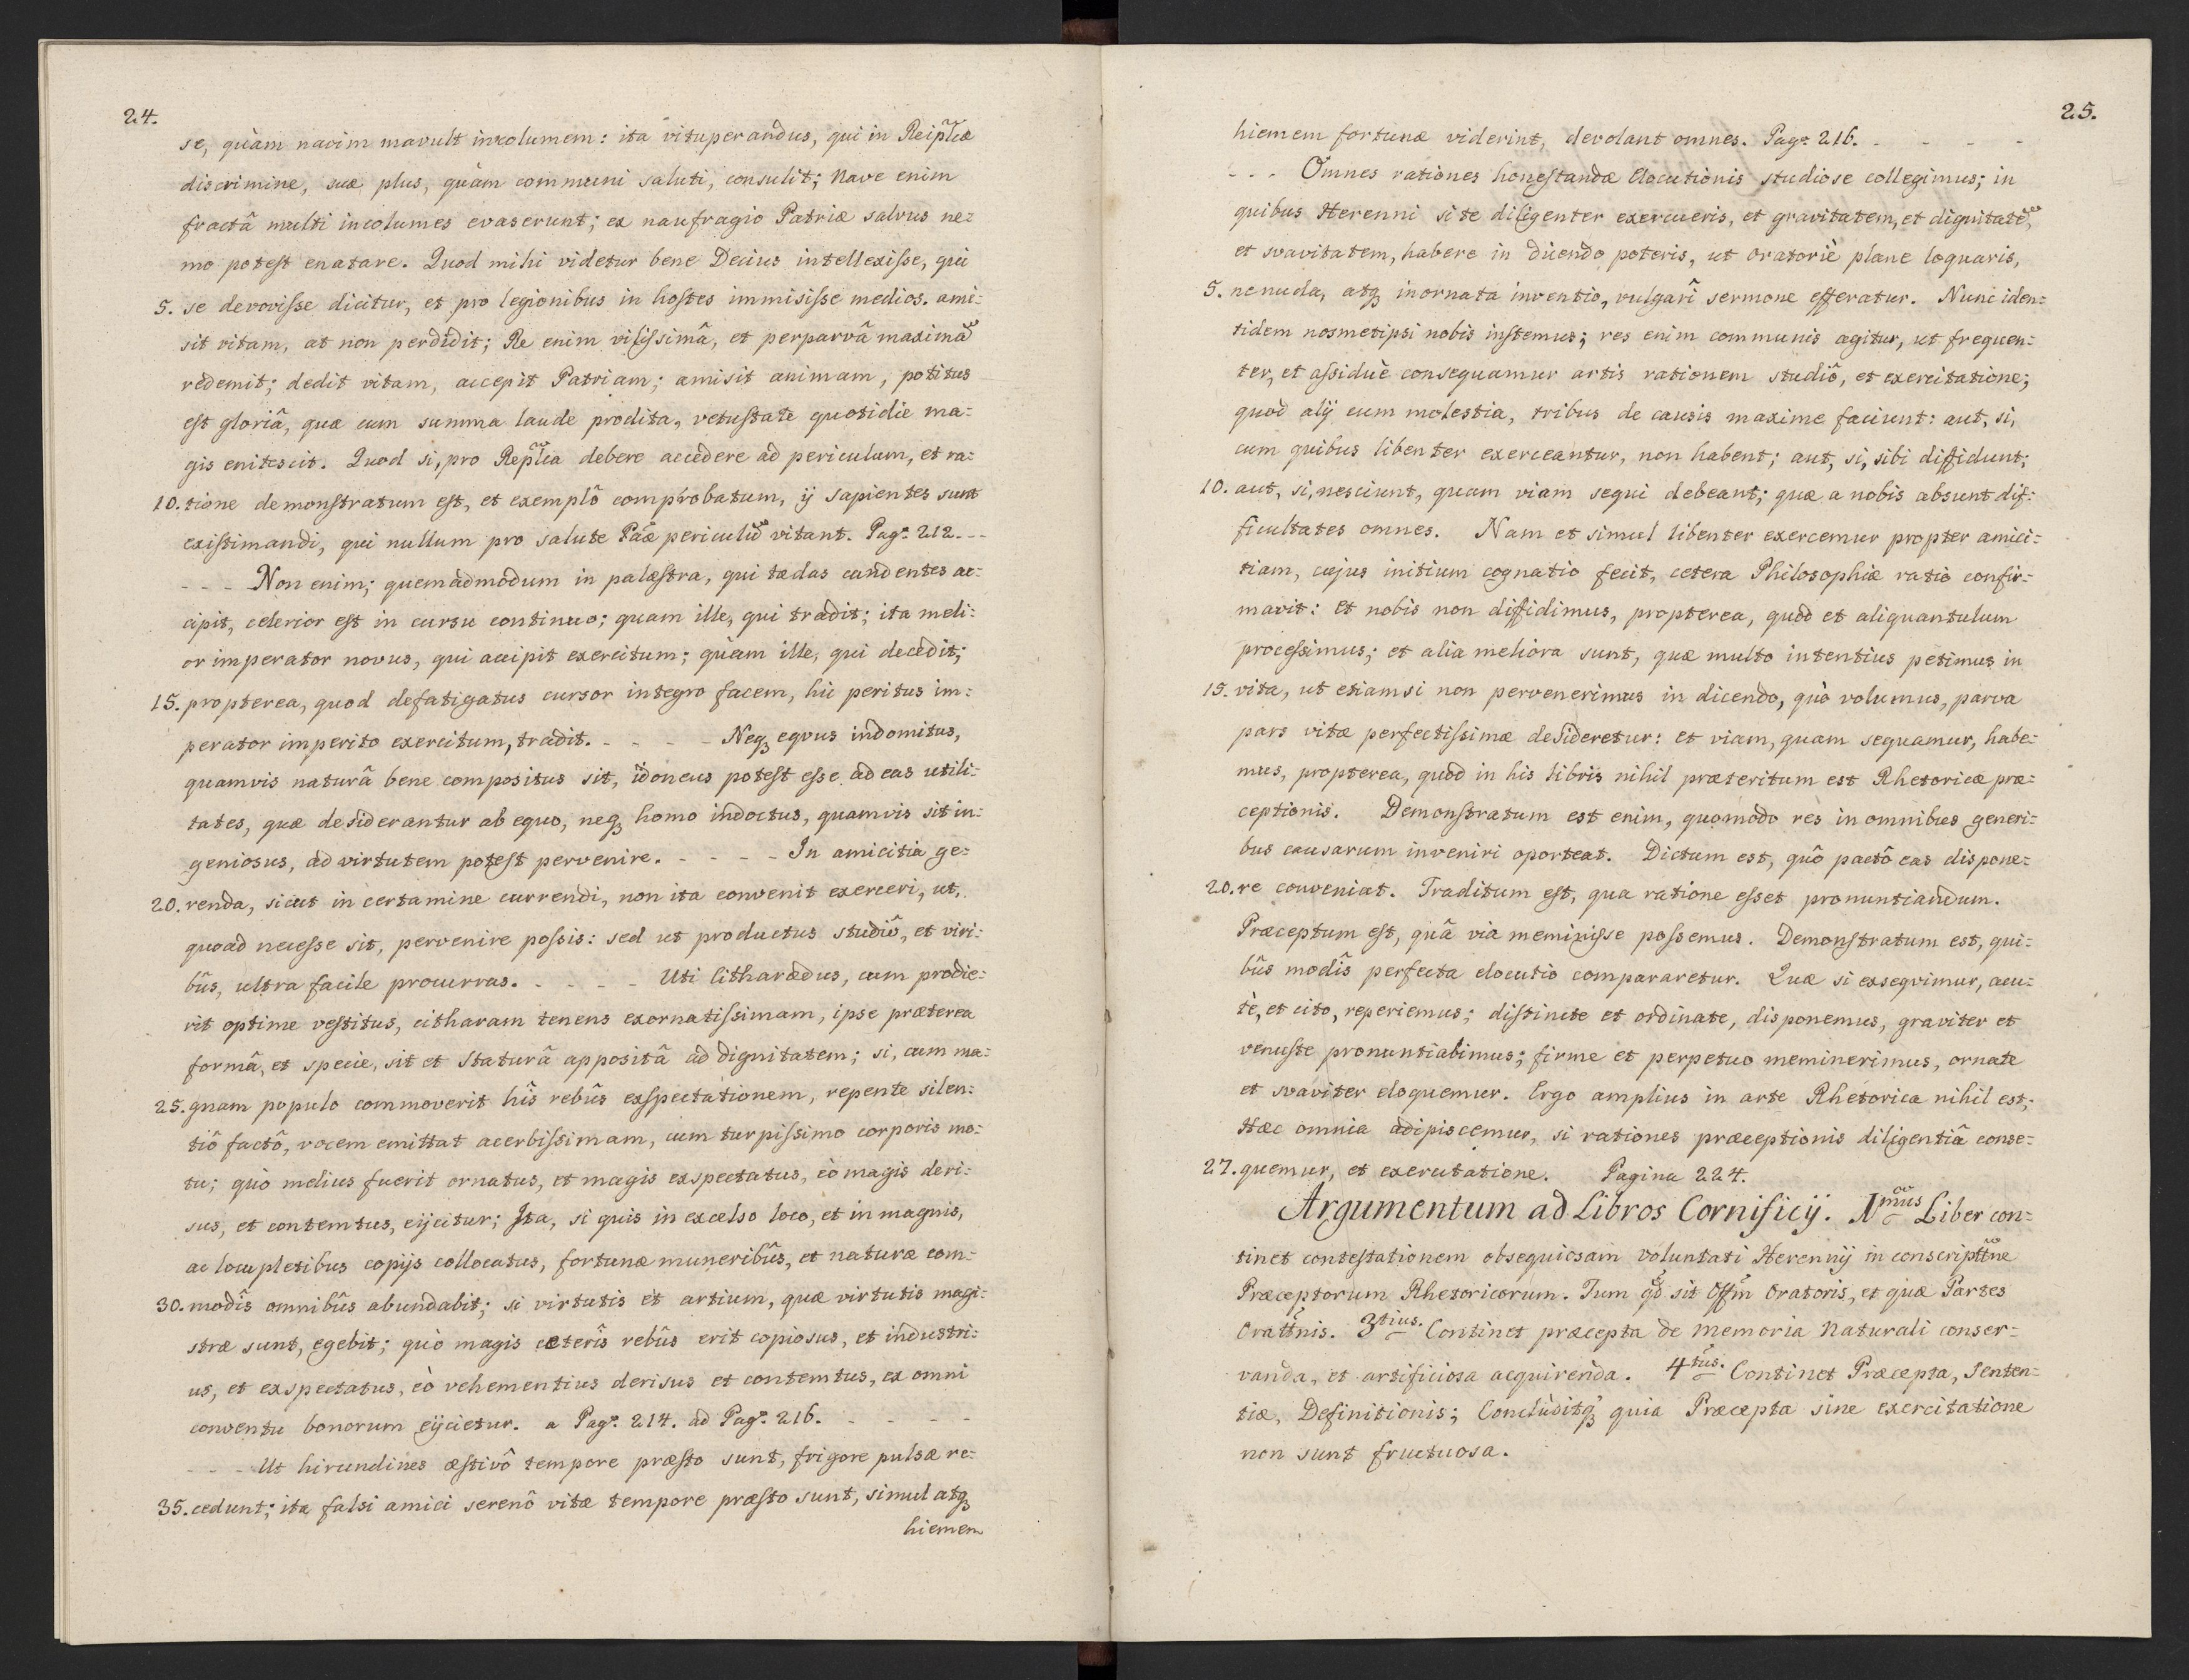 24.
se, quàm navim mavult incolumem: ita vituperandus, qui in Reiplcæ
discrimine, suæ plus, quàm communi saluti, consulit; Nave enim
fractâ multi incolumes evaserunt; ex naufragio Patriæ salvus ne=
mo potest enatare. Quod mihi videtur bene Decius intellexisse, qui
5. se devovisse dicitur, et pro legionibus in hostes immisisse medios. ami=
sit vitam, at non perdidit; Re enim vilissimâ, et perparvâ maximã
redemit; dedit vitam, accepit Patriam; amisit animam, potitus
est gloriâ, quæ cum summa laude prodita, vetustate quotidie ma=
gis enitescit. Quod si, pro Replca debere accedere ad periculum, et ra=
10. tione demonstratum est, et exemplô comprobatum, ij sapientes sunt
existimandi, qui nullum pro salute Pãæ periculũ vitant. Pagª 212. - -
- - - Non enim; quemadmodum in palæstra, qui tædas candentes ac=
cipit, celerior est in cursu continuo; quam ille, qui tradit; ita meli=
or imperator novus, qui accipit exercitum; quàm ille, qui decedit;
15. propterea, quod defatigatus cursor integro facem, hic peritus im=
perator imperito exercitum, tradit. - - - - Neqꝫ equus indomitus,
quamvis naturâ bene compositus sit, idoneus potest esse ad eas utili=
tates, quæ desiderantur ab equo, neqꝫ homo indoctus, quamvis sit in=
geniosus, ad virtutem potest pervenire. - - - - In amicitia ge=
20. renda, sicut in certamine currendi, non ita convenit exerceri, ut,
quoad necesse sit, pervenire possis: sed ut productus studiô, et viri=
bûs, ultra facile procurras. - - - - Uti Citharædus, cum prodie=
rit optime vestitus, citharam tenens exornatissimam, ipse præterea
formâ, et specie, sit et staturâ appositâ ad dignitatem; si, cum ma=
25. gnam populo commoverit hîs rebûs exspectationem, repente silen=
tiô factô, vocem emittat acerbissimam, cum turpissimo corporis mo=
tu; quò melius fuerit ornatus, et magis exspectatus, eò magis deri=
sus, et contemtus, eijcitur; Ita, si quis in excelso loco, et in magnis,
ac locupletibus copijs collocatus, fortunæ muneribûs, et naturæ com=
30. modîs omnibûs abundabit; si virtutis et artium, quæ virtutis magi=
stræ sunt, egebit; quò magis cæterîs rebûs erit copiosus, et industri=
us, et exspectatus, eò vehementius derisus et contemtus, ex omni
conventu bonorum eijcietur. a Pagª 214. ad Pagª 216. - - - -
- - - Ut hirundines æstivô tempore præsto sunt, frigore pulsæ re=
35. cedunt; ita falsi amici serenô vitæ tempore præsto sunt, simul atqꝫ
hiemem
25.
hiemem fortunæ viderint, devolant omnes. Pagª 216. - - - -
- - - Omnes rationes honestandæ Elocutionis studiose collegimus; in
quibus Herenni si te diligenter exercueris, et gravitatem, et dignitatẽ,
et svavitatem, habere in dicendo poteris, ut oratoriè plane loquaris,
5. ne nuda, atqꝫ inornata inventio, vulgarî sermone efferatur. Nunc iden=
tidem nosmetipsi nobis instemus; res enim communis agitur, ut frequen=
ter, et assiduè consequamur artis rationem studiô, et exercitatione;
quod alij cum molestia, tribus de causis maxime faciunt: aut, si,
cum quibus libenter exerceantur, non habent; aut, si, sibi diffidunt;
10. aut, si, nesciunt, quam viam sequi debeant; quæ a nobis absunt dif=
ficultates omnes. Nam et simul libenter exercemur propter amici=
tiam, cujus initium cognatio fecit, cetera Philosophiæ ratio confir=
mavit: et nobis non diffidimus, propterea, quod et aliquantulum
processimus; et alia meliora sunt, quæ multo intentius petimus in
15. vita, ut etiamsi non pervenerimus in dicendo, quò volumus, parva
pars vitæ perfectissimæ desideretur: et viam, quam sequamur, habe=
mus, propterea, quod in his libris nihil præteritum est Rhetoricæ præ=
ceptionis. Demonstratum est enim, quomodo res in omnibus generi=
bus causarum inveniri oporteat. Dictum est, quô pactô eas dispone=
20. re conveniat. Traditum est, qua ratione esset pronuntiandum.
Præceptum est, quâ via meminisse possemus. Demonstratum est, qui=
bûs modîs perfecta elocutio compararetur. Quæ si exsequimur, acu=
tè, et cito, reperiemus; distincte et ordinate, disponemus, graviter et
venuste pronuntiabimus; firme et perpetuo meminerimus, ornate
et svaviter eloquemur. Ergo amplius in arte Rhetorica nihil est;
Hæc omnia adipiscemur, si rationes præceptionis diligentiâ conse=
27. quemur, et exercitatione. Pagina 224.
Argumentum ad Libros Cornificij. Imus Liber con=
tinet contestationem obsequiosam voluntati Herennij in conscripttne
Præceptorum Rhetoricorum. Tum qd sit Offm Oratoris, et quæ Partes
Orattnis. 3tius. Continet præcepta de memoria Naturali conser=
vanda, et artificiosa acquirenda. 4tus. Continet Præcepta, Senten=
tiæ, Definitionis; Concluditqꝫ quia Præcepta sine exercitatione
non sunt fructuosa.